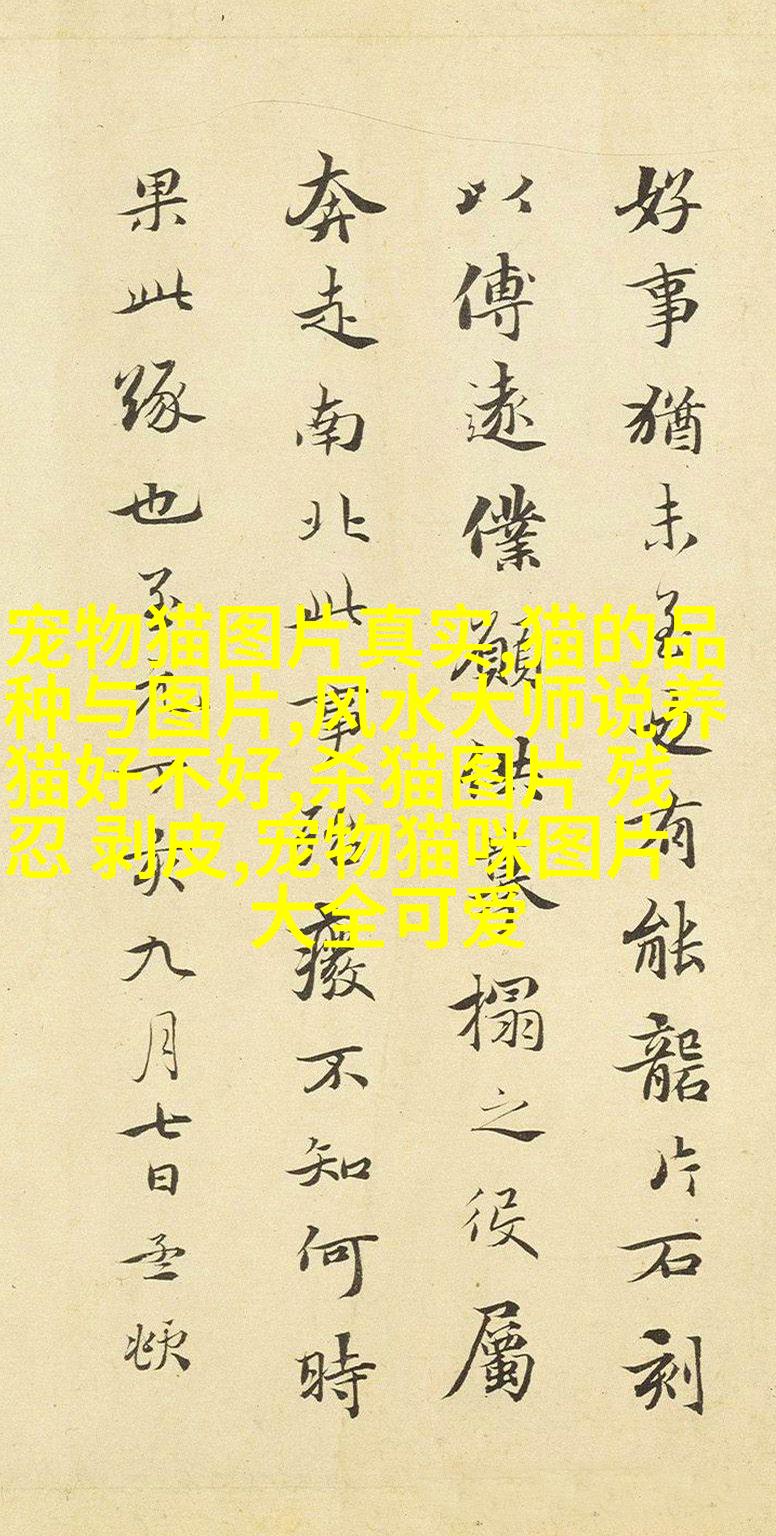 好事猶未有能礱片石刻
以傳遠僕願摹搨之役屬
奔走南北此事癈不知何時
果此緣也亥九月七日孟頫
宠物猫图片真实,猫的品
种与图片,风水大师说养
猫好不好,杀猫图片 残
忍 剥皮,宠物猫咪图片
大全可爱